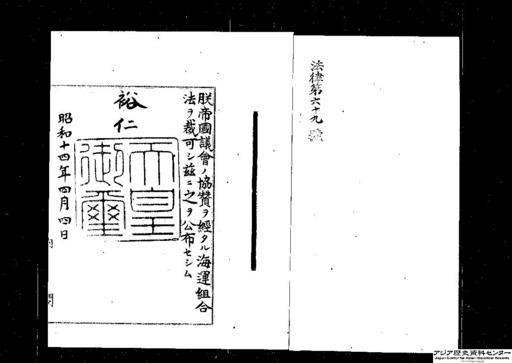 法律第六十九號
朕帝國議會ノ協贊ヲ經タル海運組合
法ヲ裁可シ茲ニ之ヲ公布セシム
裕仁
天皇
御璽
昭和十四年四月四日
アジア歴史資料センター
Japan Center for Asian Historical Records